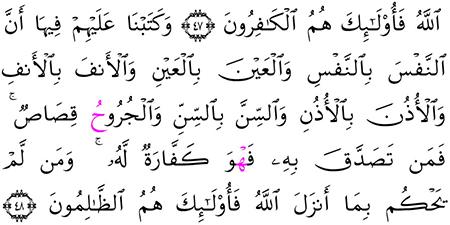 ٱللَّهُ فَأُوْلَٰٓئِكَ هُمُ ٱلْكَٰفِرُونَ ۝٤٧ وَكَتَبْنَا عَلَيْهِمْ فِيهَا أَنَّ
ٱلنَّفْسَ بِٱلنَّفْسِ وَٱلْعَيْنَ بِٱلْعَيْنِ وَٱلْأَنفَ بِٱلْأَنفِ
وَٱلْأُذُنَ بِٱلْأُذُنِ وَٱلسِّنَّ بِٱلسِّنِّ وَٱلْجُرُوحُ قِصَاصٌۚ
فَمَن تَصَدَّقَ بِهِۦ فَهْوَ كَفَّارَةٌ لَّهُۥۚ وَمَن لَّمْ
يَحْكُم بِمَا أَنزَلَ ٱللَّهُ فَأُوْلَٰٓئِكَ هُمُ ٱلظَّٰلِمُونَ ۝٤٨